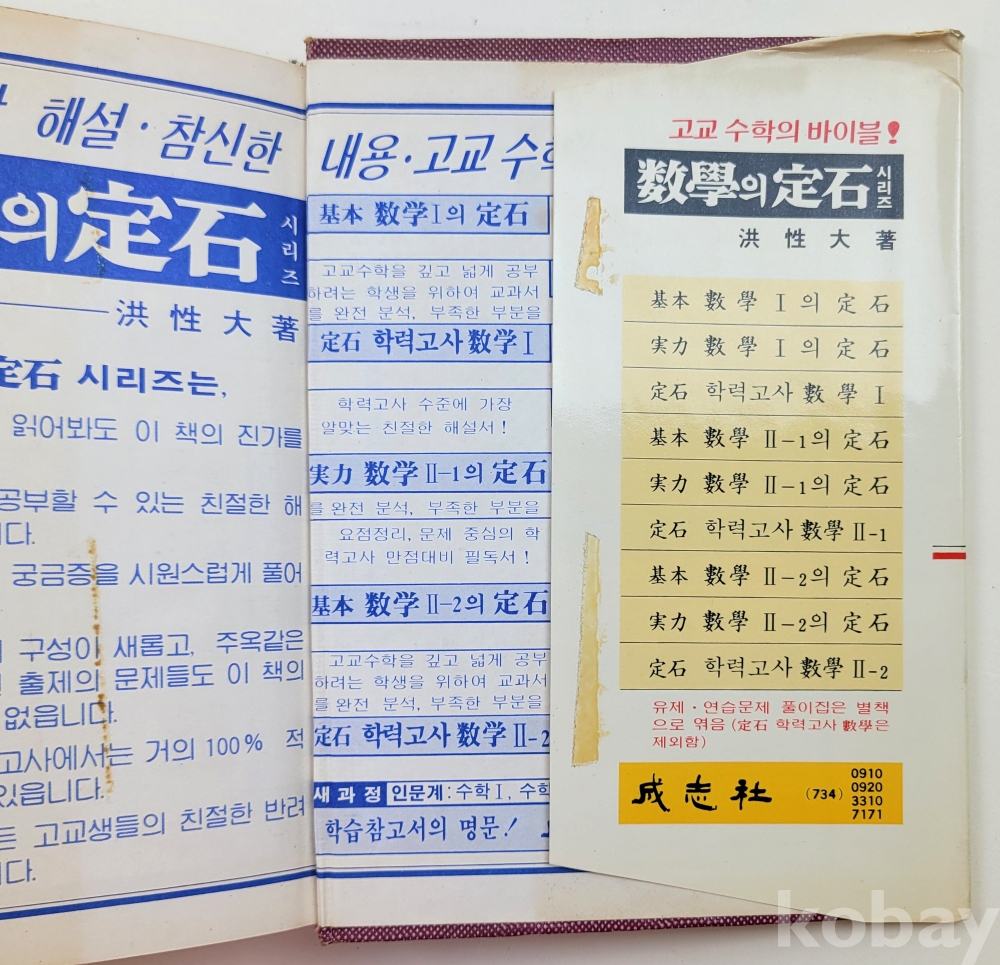 해설·참신한
의 定石 시리즈
洪性大 著
定石 시리즈는,
읽어봐도 이 책의 진가를
공부할 수 있는 친절한 해
니다.
궁금증을 시원스럽게 풀어
구성이 새롭고, 주옥같은
출제의 문제들도 이 책의
없읍니다.
고사에서는 거의 100% 적
있읍니다.
고교생들의 친절한 반려
니다.
내용·고교 수학
基本 数学Ⅰ의 定石
고교수학을 깊고 넓게 공부
하려는 학생을 위하여 교과서
를 완전 분석, 부족한 부분을
定石 학력고사 数学Ⅰ
학력고사 수준에 가장
알맞는 친절한 해설서!
実力 数学Ⅱ-1의 定石
를 완전 분석, 부족한 부분을
요점정리, 문제 중심의 학
력고사 만점대비 필독서!
基本 数学Ⅱ-2의 定石
고교수학을 깊고 넓게 공부
하려는 학생을 위하여 교과서
를 완전 분석, 부족한 부분을
定石 학력고사 数学Ⅱ-2
새과정 인문계: 수학Ⅰ, 수학
학습참고서의 명문!
고교 수학의 바이블!
数學의 定石 시리즈
洪性大 著
基本 數學 Ⅰ의 定石
実力 數學 Ⅰ의 定石
定石 학력고사 數學 Ⅰ
基本 數學 Ⅱ-1의 定石
実力 數學 Ⅱ-1의 定石
定石 학력고사 數學 Ⅱ-1
基本 數學 Ⅱ-2의 定石
実力 數學 Ⅱ-2의 定石
定石 학력고사 數學 Ⅱ-2
유제·연습문제 풀이집은 별책
으로 엮음 (定石 학력고사 數學은
제외함)
成志社 (734) 0910
0920
3310
7171
kobay